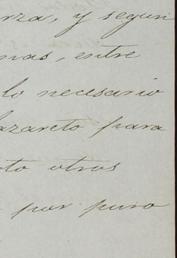 rza, y segun
mas, entre
lo necesario
lazareto para
to otros
por puro